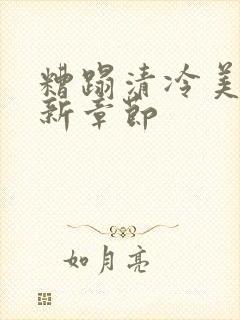 糟蹋清冷美
新章节
如月亮